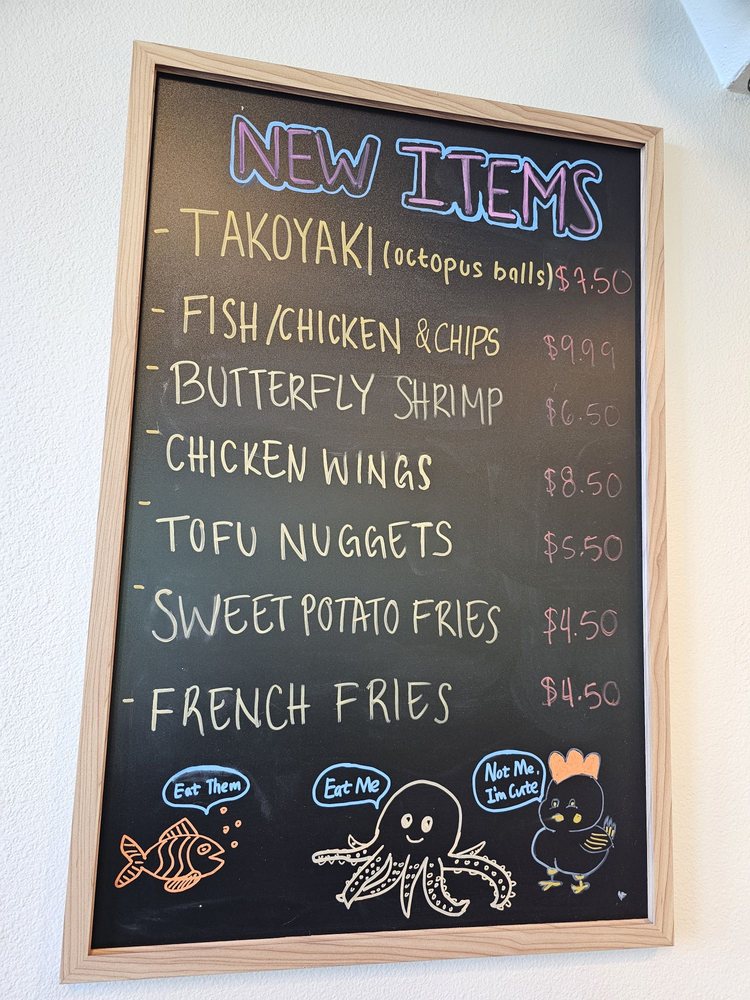 NEW ITEMS
- TAKOYAKI (octopus balls) $7.50
- FISH/CHICKEN & CHIPS $9.99
- BUTTERFLY SHRIMP $6.50
- CHICKEN WINGS $8.50
- TOFU NUGGETS $5.50
- SWEET POTATO FRIES $4.50
- FRENCH FRIES $4.50
Eat Them
Eat Me
Not Me.
I'm Cute